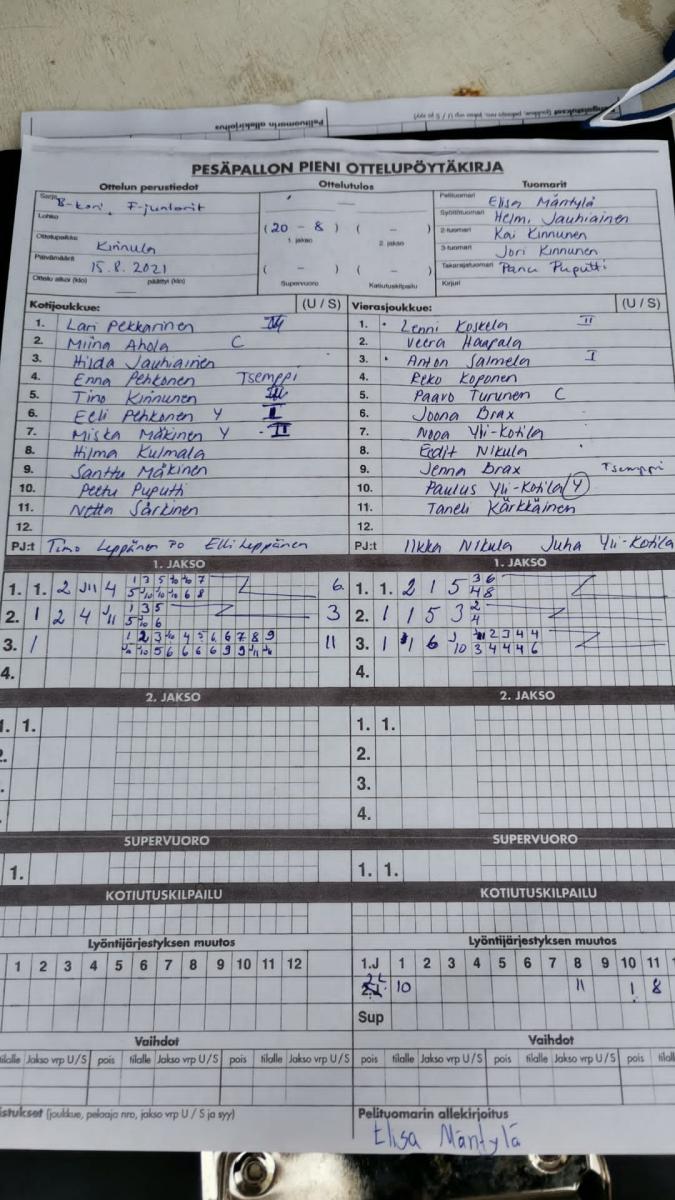 Pelituomarin allekirjoitus
PESÄPALLON PIENI OTTELUPÖYTÄKIRJA
Ottelun perustiedot
Ottelutulos
Tuomarit
Sarja B-kori, F-juniorit
Lohko
Ottelupaikka Kinnula
Päivämäärä 15.8.2021
Ottelu alkoi (klo) päättyi (klo)
(20 – 8) ( – )
1. jakso 2. jakso
( – ) ( – )
Supervuoro Kotiutuskilpailu
Pelituomari Elisa Mäntylä
Syöttötuomari Helmi Jauhiainen
2-tuomari Kai Kinnunen
3-tuomari Jori Kinnunen
Takarajatuomari Panu Puputti
Kirjuri
Kotijoukkue: (U / S)
1. Lari Pekkarinen
2. Miina Ahola C
3. Hilda Jauhiainen
4. Enna Pehkonen Tsemppi
5. Timo Kinnunen III
6. Eeli Pehkonen Y I
7. Miska Mäkinen Y II
8. Hilma Kulmala
9. Santtu Mäkinen
10. Peetu Puputti
11. Netta Särkinen
12.
PJ:t Timo Leppänen Elli Leppänen
Vierasjoukkue: (U / S)
1. Lenni Koskela II
2. Veera Haapala
3. Anton Salmela I
4. Reko Koponen
5. Paavo Turunen C
6. Joona Brax
7. Nooa Yli-Kotila
8. Eedit Nikula
9. Jenna Brax Tsemppi
10. Paulus Yli-Kotila Y
11. Taneli Kärkkäinen
12.
PJ:t Ilkka Nikula Juha Yli-Kotila
1. JAKSO
1. 1. 2 J11 4 6
2. 1 2 4 J11 3
3. 1 11
4.
1. JAKSO
1. 1. 2 1 5
2. 1 1 5 3
3. 1 1 6
4.
2. JAKSO
1. 1.
2. JAKSO
1. 1.
2.
3.
4.
SUPERVUORO
1.
SUPERVUORO
1. 1.
KOTIUTUSKILPAILU
KOTIUTUSKILPAILU
Lyöntijärjestyksen muutos
1 2 3 4 5 6 7 8 9 10 11 12
Lyöntijärjestyksen muutos
1.J 1 2 3 4 5 6 7 8 9 10 11
10 11 1 8
Sup
Vaihdot
tilalle Jakso vrp U / S pois tilalle Jakso vrp U / S pois tilalle Jakso vrp U / S
Vaihdot
pois tilalle Jakso vrp U / S pois tilalle Jakso vrp U / S pois
(joukkue, pelaaja nro, jakso vrp U / S ja syy)
Pelituomarin allekirjoitus
Elisa Mäntylä